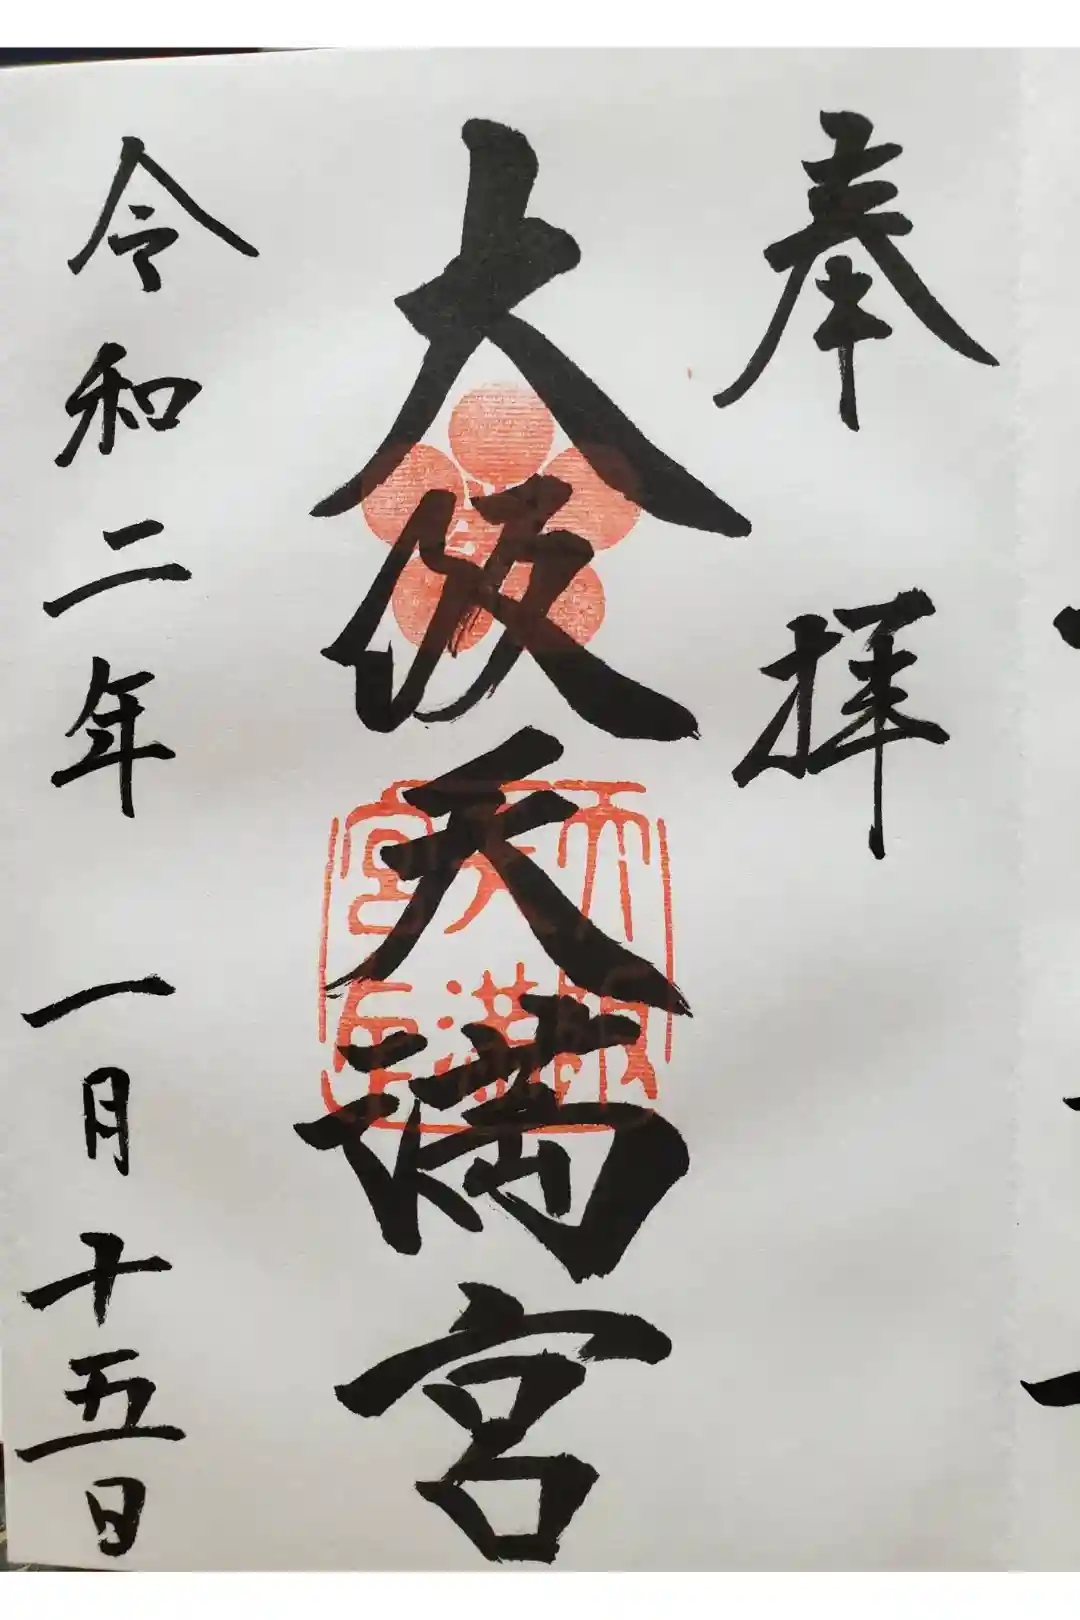 奉拝
大阪天満宮
令和二年一月十五日
大阪
天満
宮印